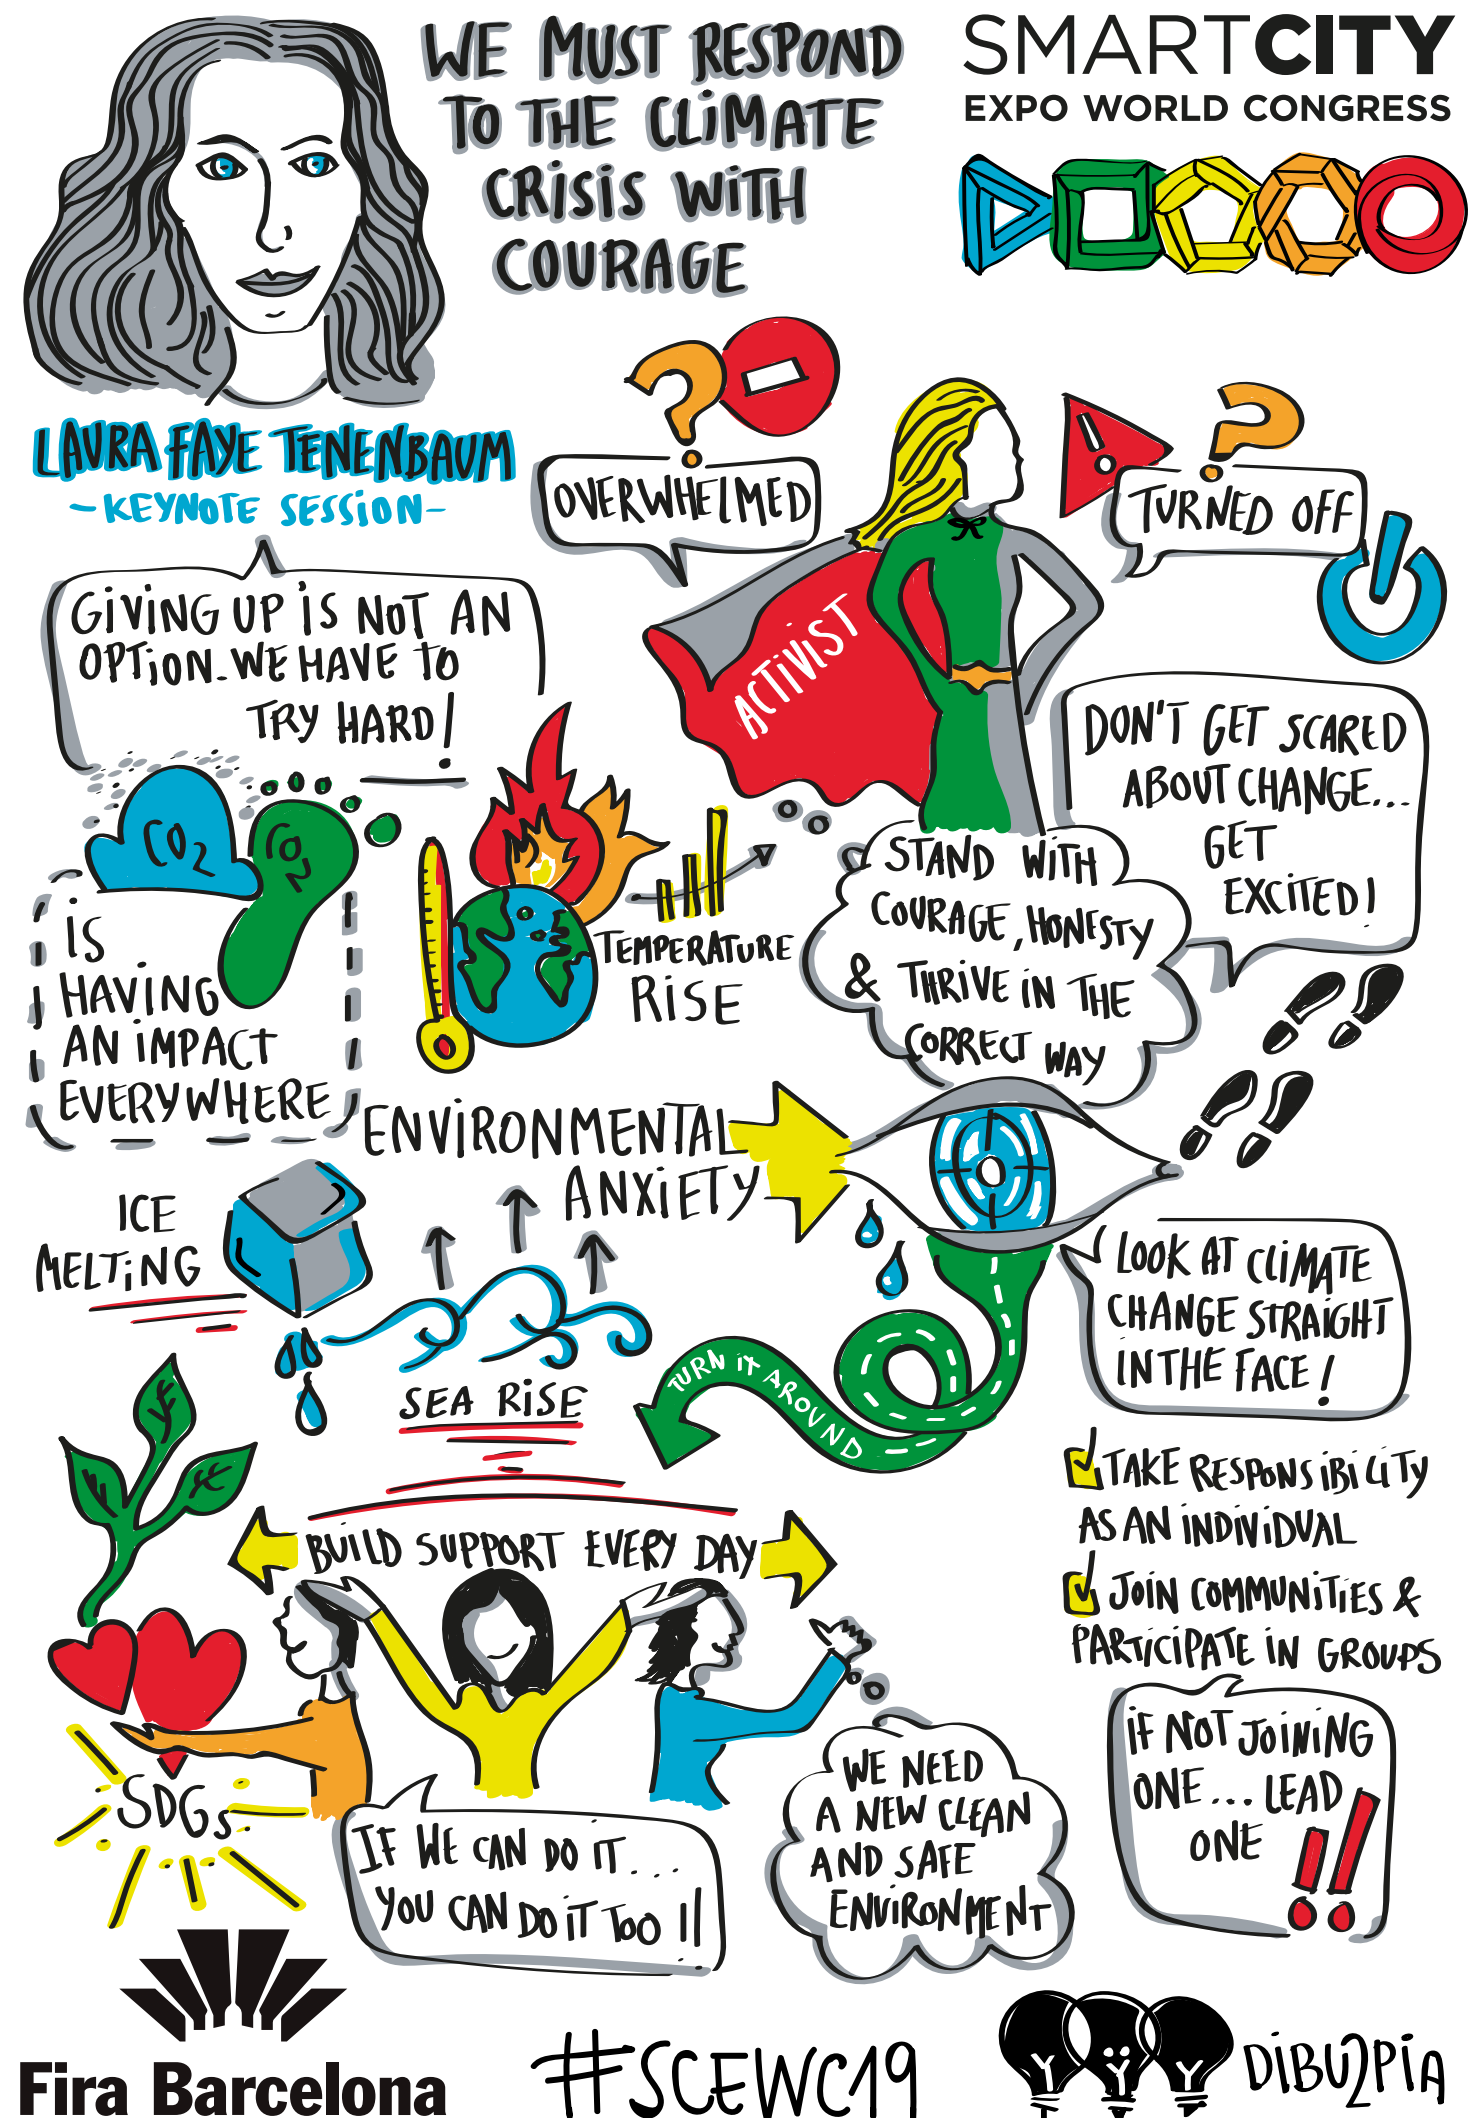 WE MUST RESPOND
TO THE CLIMATE
CRISIS WITH
COURAGE
SMARTCITY
EXPO WORLD CONGRESS
LAURA FAYE TENENBAUM
-KEYNOTE SESSION-
GIVING UP IS NOT AN
OPTION-WE HAVE TO
TRY HARD!
OVERWHELMED
TURNED OFF
ACTIVIST
DON'T GET SCARED
ABOUT CHANGE...
GET
EXCITED!
CO2
CO2
IS
HAVING
AN IMPACT
EVERYWHERE
TEMPERATURE
RISE
STAND WITH
COURAGE, HONESTY
& THRIVE IN THE
CORRECT WAY
ENVIRONMENTAL
ANXIETY
ICE
MELTING
SEA RISE
TURN IT AROUND
LOOK AT CLIMATE
CHANGE STRAIGHT
IN THE FACE!
TAKE RESPONSIBILITY
AS AN INDIVIDUAL
JOIN COMMUNITIES &
PARTICIPATE IN GROUPS
BUILD SUPPORT EVERY DAY
SDGs
IF WE CAN DO IT...
YOU CAN DO IT TOO !!
WE NEED
A NEW CLEAN
AND SAFE
ENVIRONMENT
IF NOT JOINING
ONE... LEAD
ONE !!
Fira Barcelona
#SCEWC19
DIBU2PIA